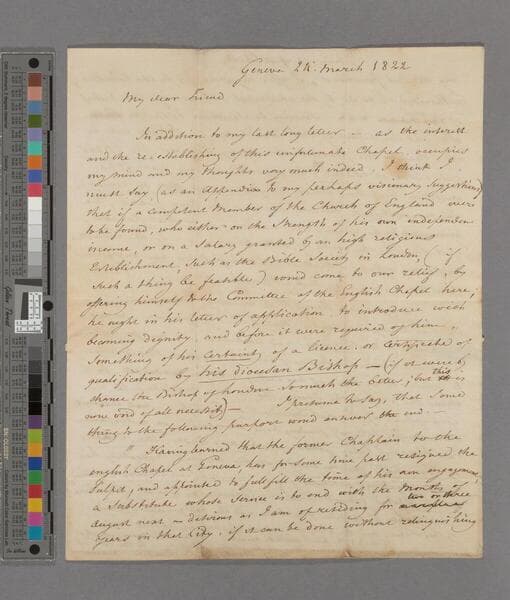 Geneva 24. March 1822
My dear Friend
In addition to my last long letter – as the interest
and the re-establishing of this unfortunate Chapel, occupies
my mind and my thoughts very much indeed, I think I
must say (as an Appendix to my perhaps visionary suggestions)
that if a competent Member of the Church of England were
to be found, who either on the Strength of his own independen
income, or on a Salary granted by an high religious
Establishment, such as the Bible Society in London, (if
such a thing be feasible) would come to our relief, by
offering himself to the Committee of the English Chapel here;
he ought in his letter of application to introduce with
becoming dignity, and before it were required of him
something of his certainty of a licence, or Certificate of
qualification by his diocesan Bishop – (if it were by
chance the Bishop of London so much the better, but this is
now void of all necessity) – I presume to say, that some
thing to the following purport would answer the end –
" Having learned that the former Chaplain to the
english Chapel at Geneva, has for some time past resigned the
Pulpit, and appointed to fullfill the time of his own engagement,
a Substitute whose Service is to end with the Months of
August next – desirous as I am of residing for two or three
years in that City, if it can be done without relinquishing